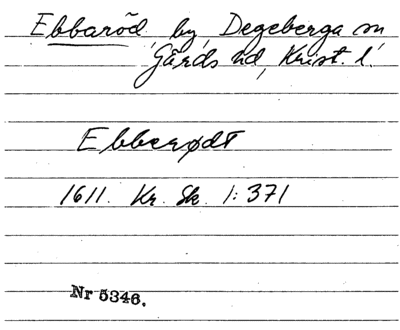 Ebbaröd, by, Degeberga sn
Gärds hd, Krist. l.
Ebberødt
1611. Kr. Sk. 1:371
Nr 5346.